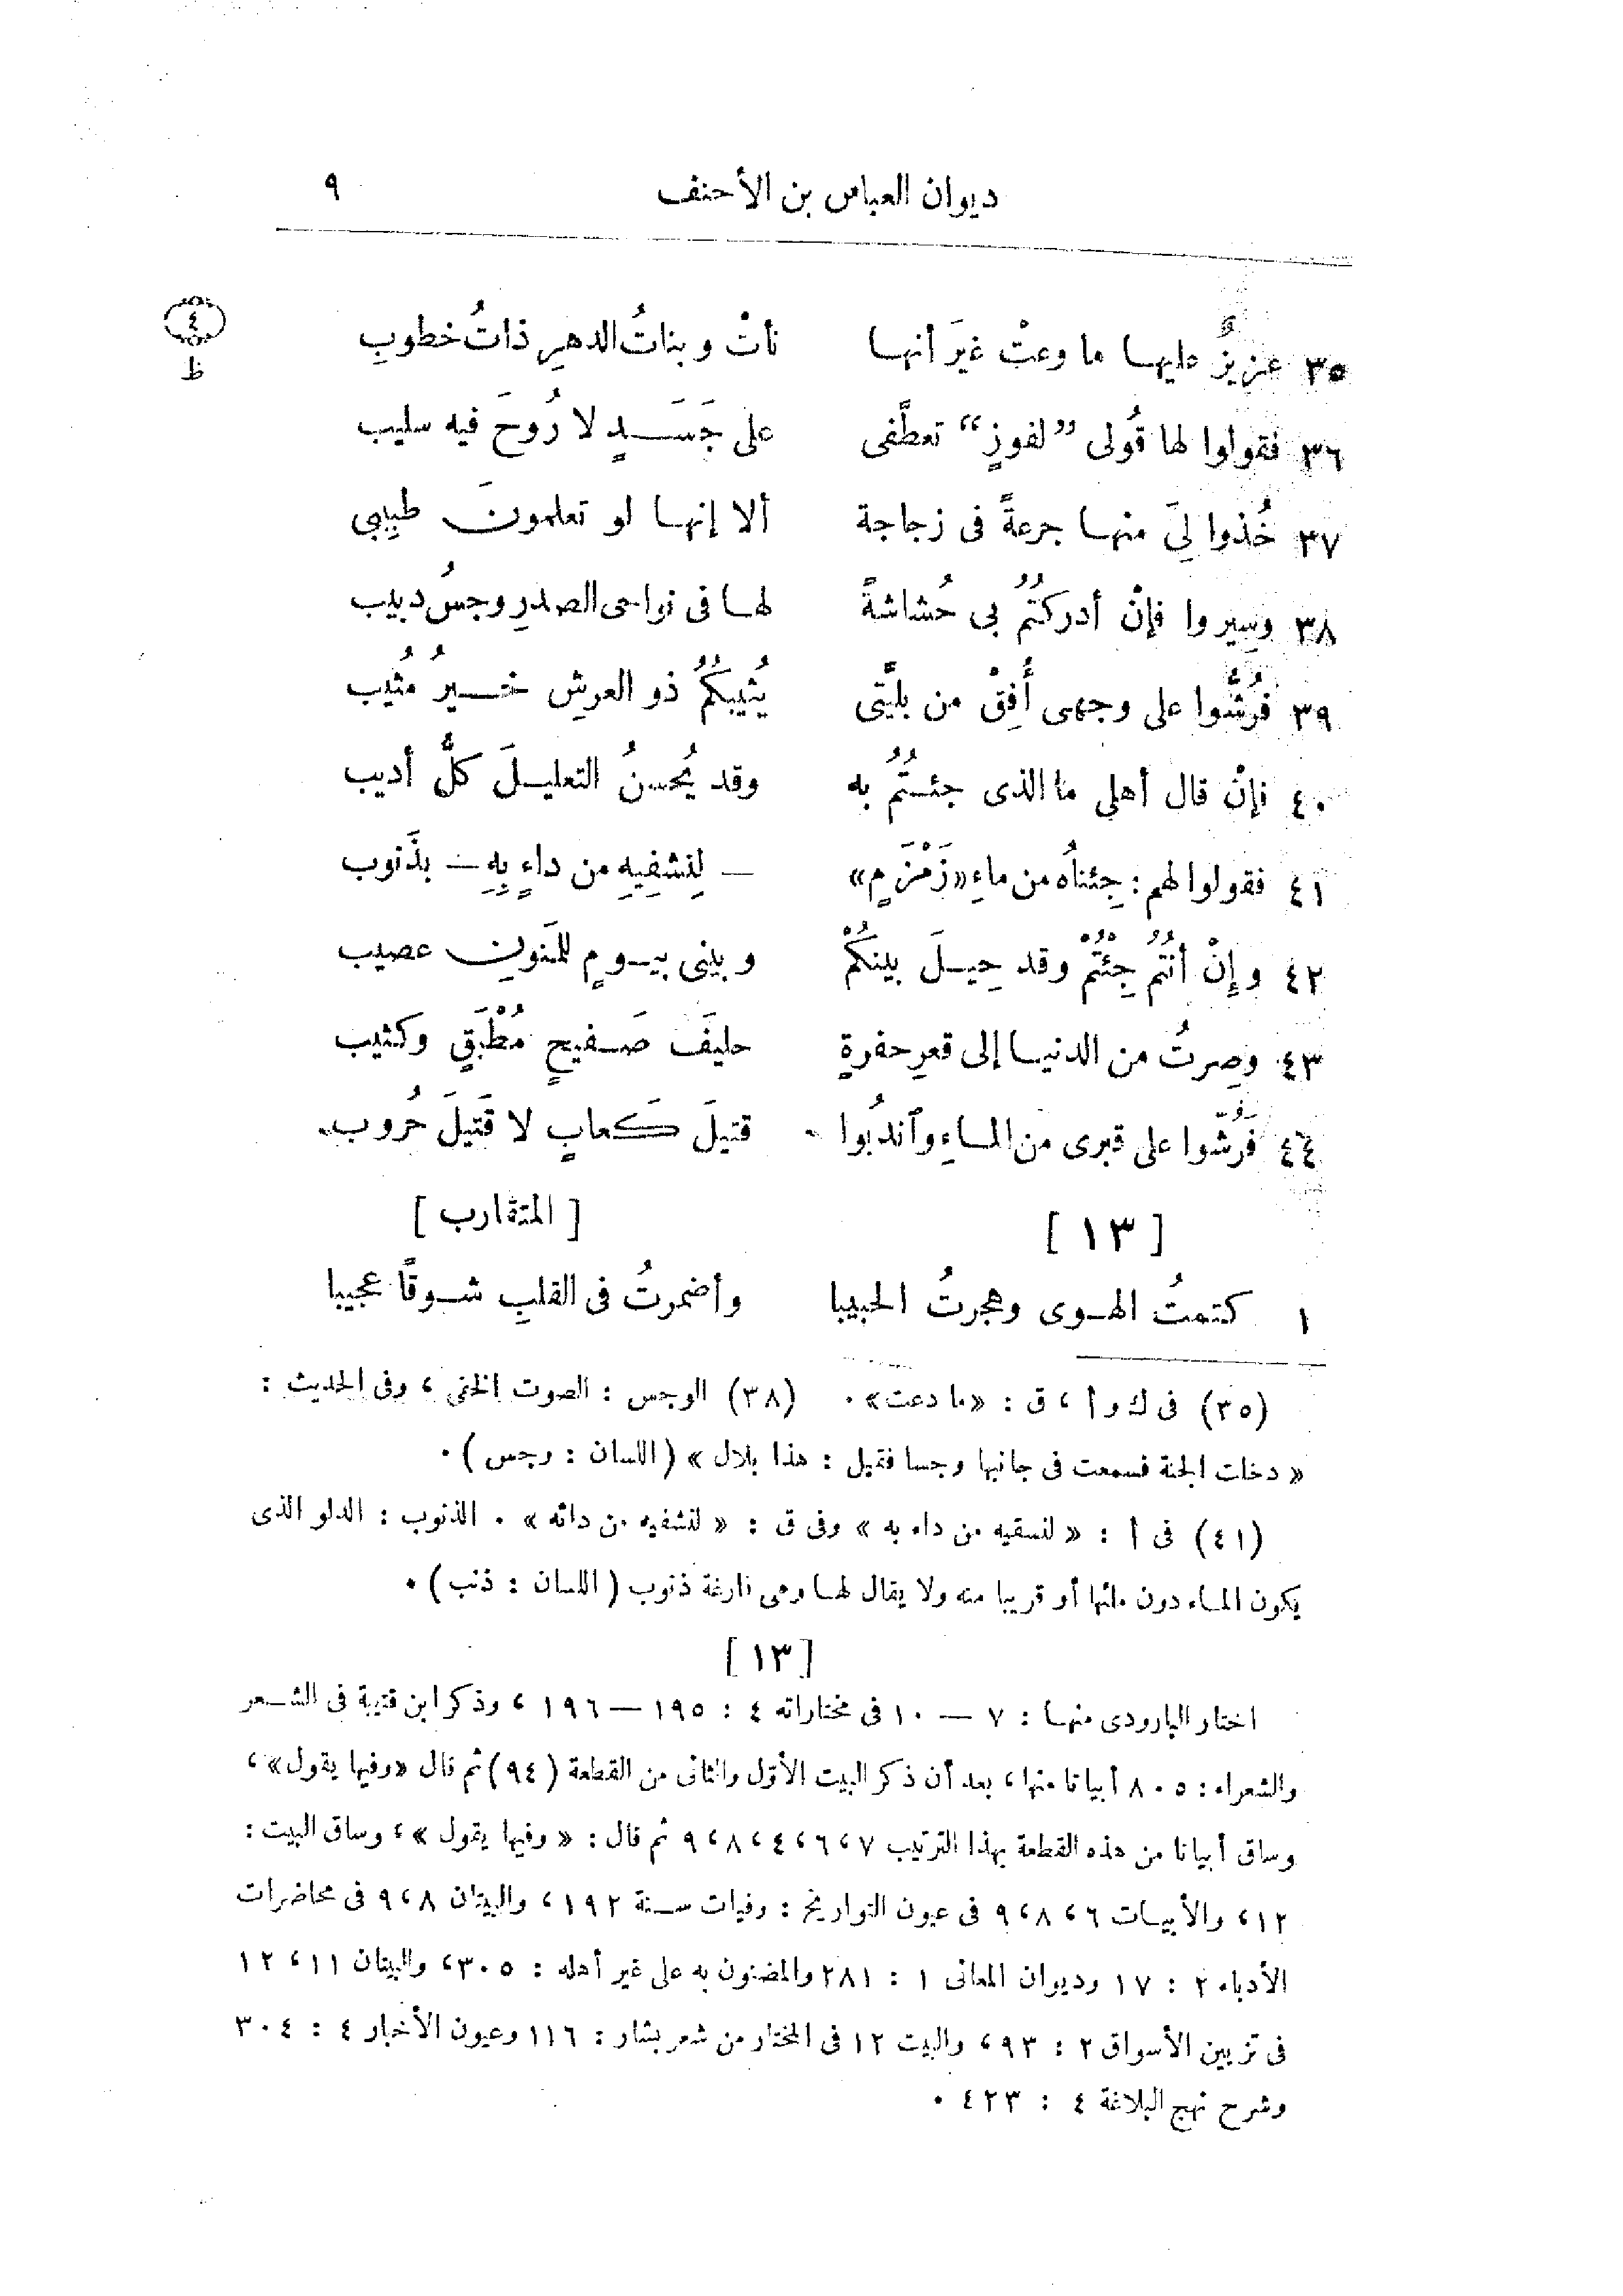 ديوان العباس بن الأحنف ٩
٤
ظ
٣٥ عزيزٌ عليها ما وعتْ غيرَ أنها نأتْ وبناتُ الدهرِ ذاتُ خطوبِ
٣٦ فقولوا لها قُولى ”لفوزٍ“ تعطَّفى على جَسَدٍ لا رُوحَ فيه سليب
٣٧ خُذوا لِىَ منها جرعةً فى زجاجة ألا إنها لو تعلمونَ طبِيبى
٣٨ وسِيروا فإنْ أدركتُمُ بى حُشاشةً لها فى نواحى الصدرِ وجسُ دبيب
٣٩ فرُشُّوا على وجهى أُفِقْ من بليَّتى يُثيبكُمُ ذو العرشِ خيرُ مُثيب
٤٠ فإنْ قال أهلى ما الذى جئتُمُ به وقد يُحسنُ التعليلَ كلُّ أديب
٤١ فقولوا لهم : جِئناهُ من ماءِ «زَمْزَمٍ» — لِنشفِيهِ من داءٍ بِهِ — بذَنوب
٤٢ وإِنْ أنتُمُ جِئتُمْ وقد حِيلَ بينكُمْ وبينى بيومٍ للمَنونِ عصيب
٤٣ وصِرتُ من الدنيا إلى قعرِ حفرةٍ حليفَ صَفيحٍ مُطْبَقٍ وكثيب
٤٤ فَرُشّوا على قبرى من الماءِ وٱندبُوا قتيلَ كَعابٍ لا قَتيلَ حُروب
[ ١٣ ] [ المتقارب ]
١ كتمتُ الهوى وهجرتُ الحبيبا وأضمرتُ فى القلبِ شوقًا عجيبا
(٣٥) فى ك و أ ، ق : «ما دعت» . (٣٨) الوجس : الصوت الخفى ، وفى الحديث :
« دخلت الجنة فسمعت فى جانبها وجسا فقيل : هذا بلال » (اللسان : وجس) .
(٤١) فى أ : « لنسقيه من داء به » وفى ق : « لنشفيه من دائه » . الذنوب : الدلو الذى
يكون الماء دون ملئها أو قريبا منه ولا يقال لها وهى فارغة ذنوب (اللسان : ذنب) .
[١٣]
اختار البارودى منها : ٧ — ١٠ فى مختاراته ٤ : ١٩٥ — ١٩٦ ، وذكر ابن قتيبة فى الشعر
والشعراء : ٨٠٥ أبياتا منها ، بعد أن ذكر البيت الأوّل والثانى من القطعة (٩٤) ثم قال «وفيها يقول» ،
وساق أبياتا من هذه القطعة بهذا الترتيب ٧ ، ٦ ، ٤ ، ٨ ، ٩ ثم قال : « وفيها يقول » ، وساق البيت :
١٢ ، والأبيات ٦ ، ٨ ، ٩ فى عيون التواريخ : وفيات سنة ١٩٢ ، والبيتان ٨ ، ٩ فى محاضرات
الأدباء ٢ : ١٧ وديوان المعانى ١ : ٢٨١ والمضنون به على غير أهله : ٣٠٥ ، والبيتان ١١ ، ١٢
فى تزيين الأسواق ٢ : ٩٣ ، والبيت ١٢ فى المختار من شعر بشار : ١١٦ وعيون الأخبار ٤ : ٣٠٤
وشرح نهج البلاغة ٤ : ٤٢٣ .